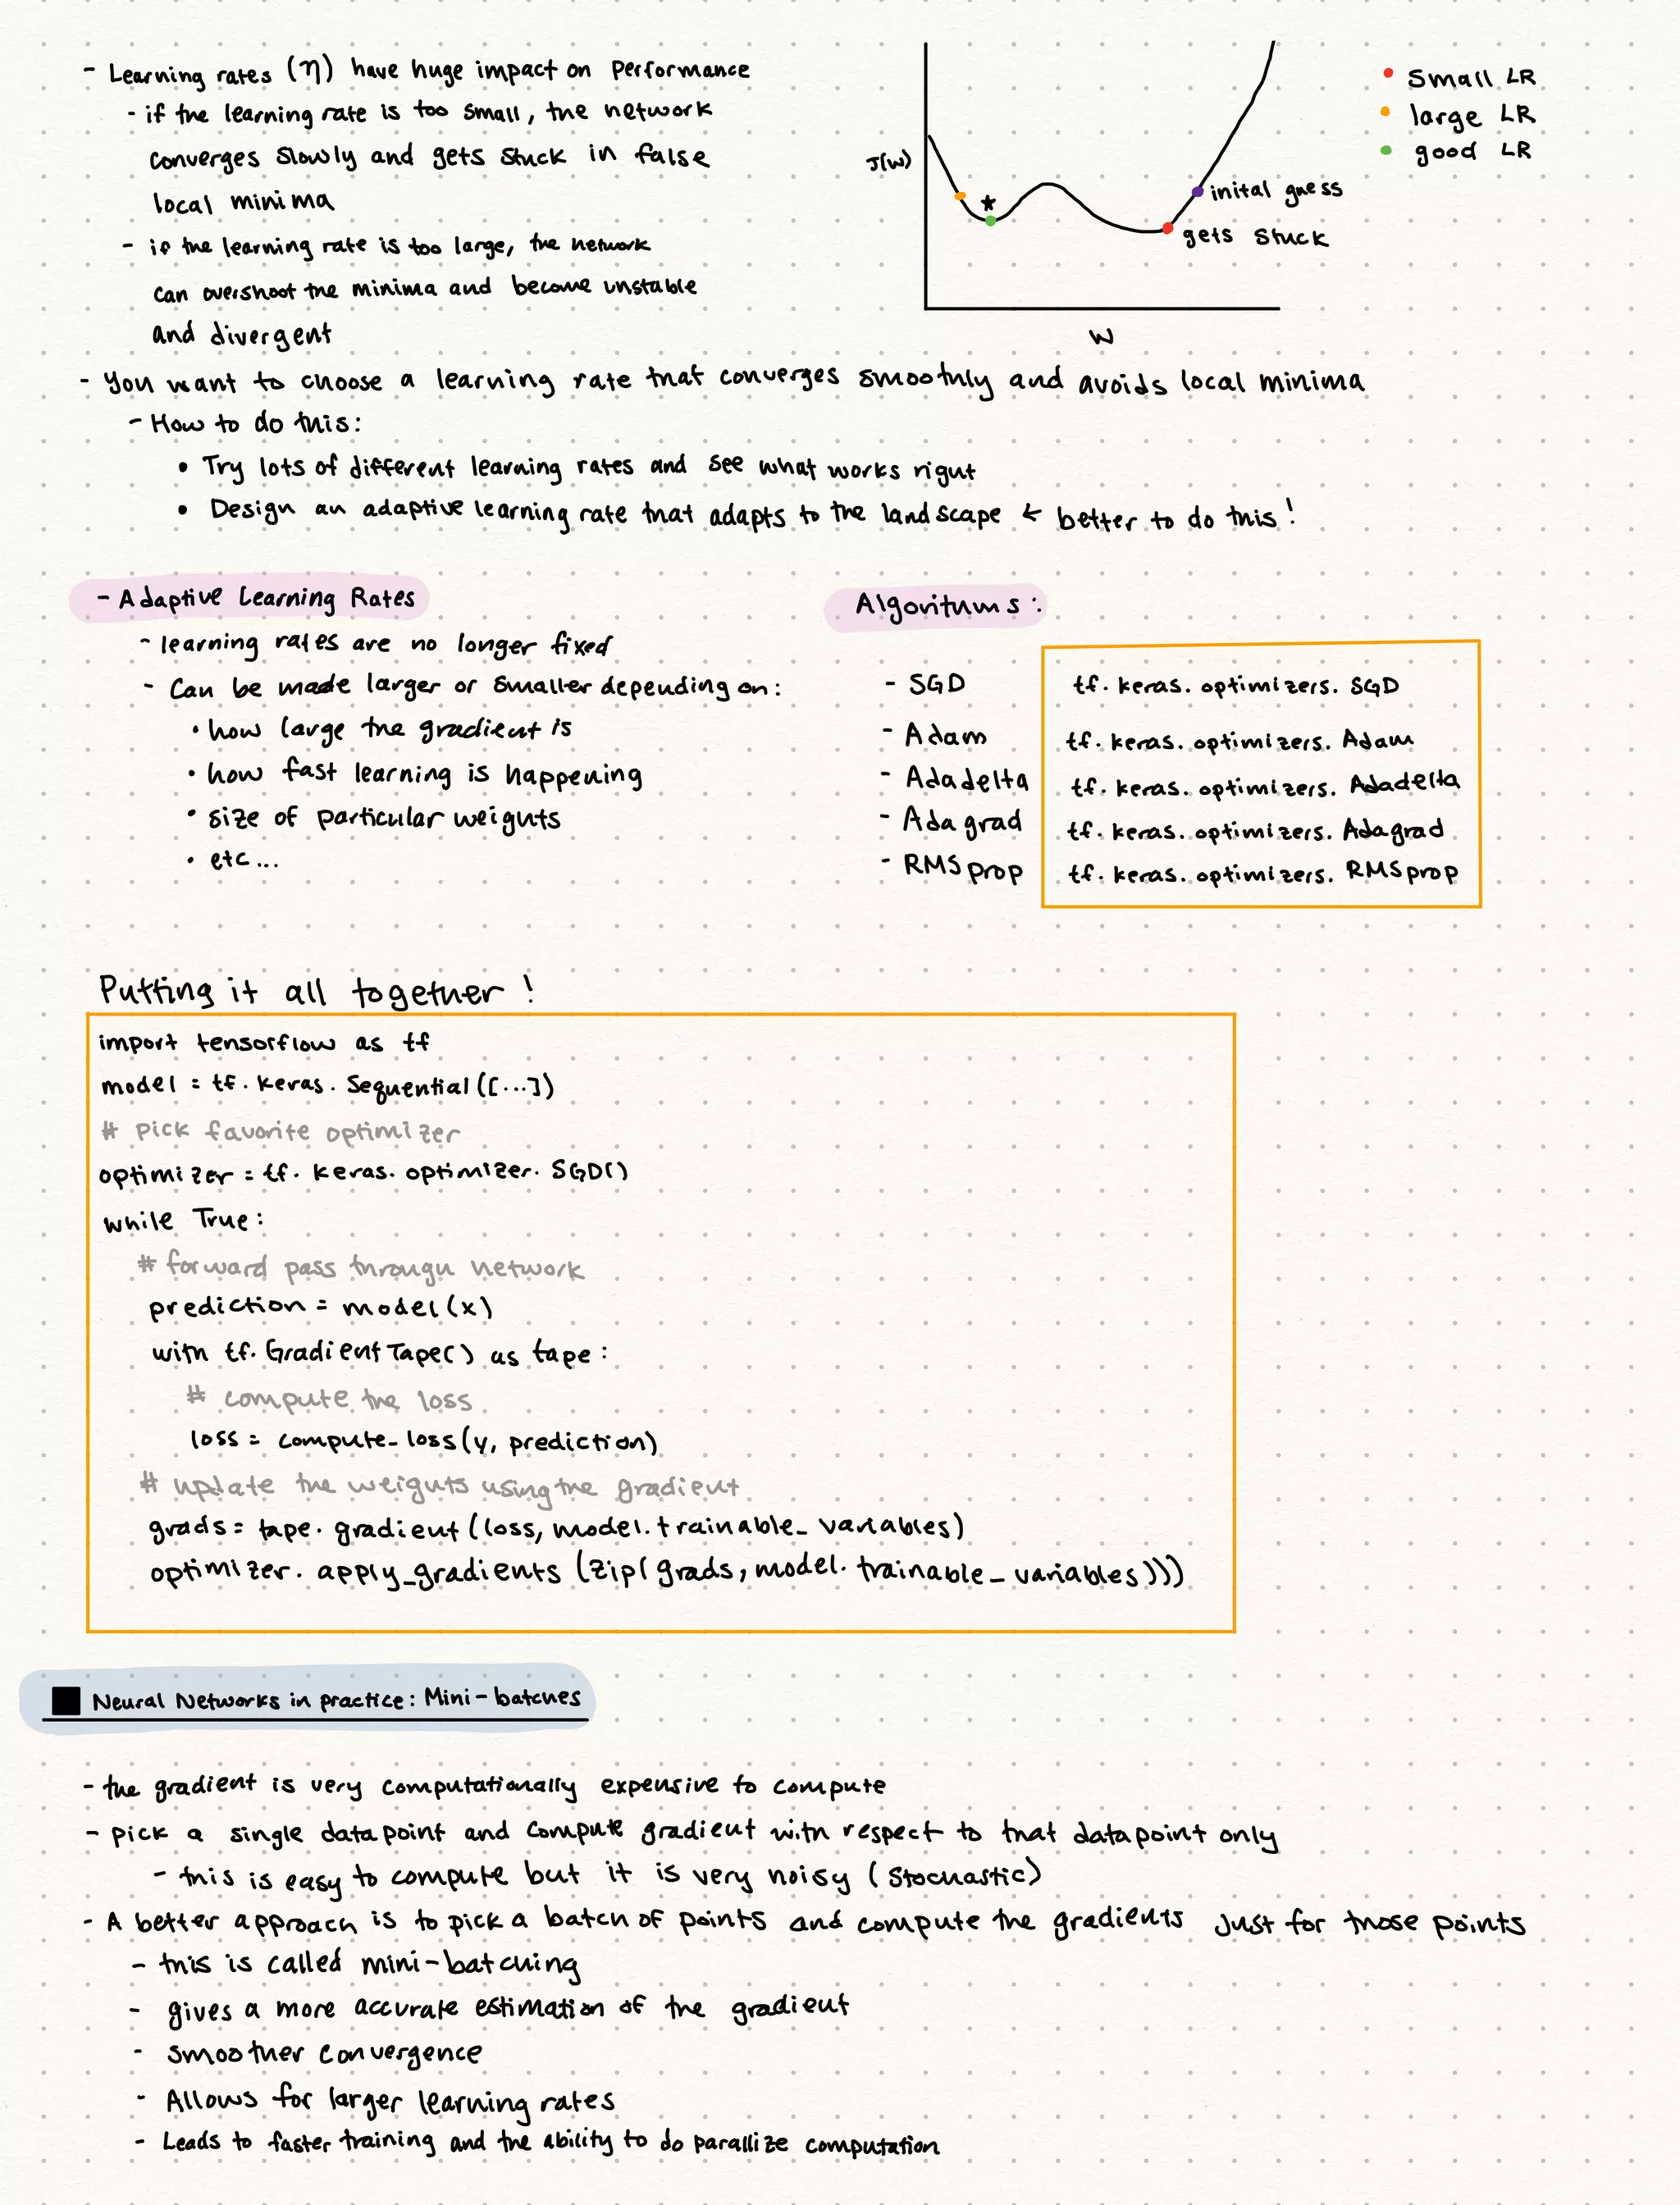 - Learning rates (η) have huge impact on performance
- if the learning rate is too small, the network
converges slowly and gets stuck in false
local minima
- if the learning rate is too large, the network
can overshoot the minima and become unstable
and divergent
J(w)
*
inital guess
gets stuck
W
• Small LR
• large LR
• good LR
- You want to choose a learning rate that converges smoothly and avoids local minima
- How to do this:
• Try lots of different learning rates and see what works right
• Design an adaptive learning rate that adapts to the landscape ← better to do this!
- Adaptive Learning Rates
- learning rates are no longer fixed
- Can be made larger or smaller depending on:
• how large the gradient is
• how fast learning is happening
• size of particular weights
• etc...
Algorithms:
- SGD tf.keras.optimizers.SGD
- Adam tf.keras.optimizers.Adam
- Adadelta tf.keras.optimizers.Adadelta
- Adagrad tf.keras.optimizers.Adagrad
- RMSprop tf.keras.optimizers.RMSprop
Putting it all together!
import tensorflow as tf
model = tf.keras.Sequential([...])
# pick favorite optimizer
optimizer = tf.keras.optimizer.SGD()
while True:
# forward pass through network
prediction = model(x)
with tf.GradientTape() as tape:
# compute the loss
loss = compute_loss(y, prediction)
# update the weights using the gradient
grads = tape.gradient(loss, model.trainable_variables)
optimizer.apply_gradients(zip(grads, model.trainable_variables)))
■ Neural Networks in practice: Mini-batches
- the gradient is very computationally expensive to compute
- pick a single data point and compute gradient with respect to that datapoint only
- this is easy to compute but it is very noisy (stochastic)
- A better approach is to pick a batch of points and compute the gradients just for those points
- this is called mini-batching
- gives a more accurate estimation of the gradient
- smoother convergence
- Allows for larger learning rates
- Leads to faster training and the ability to do parallize computation